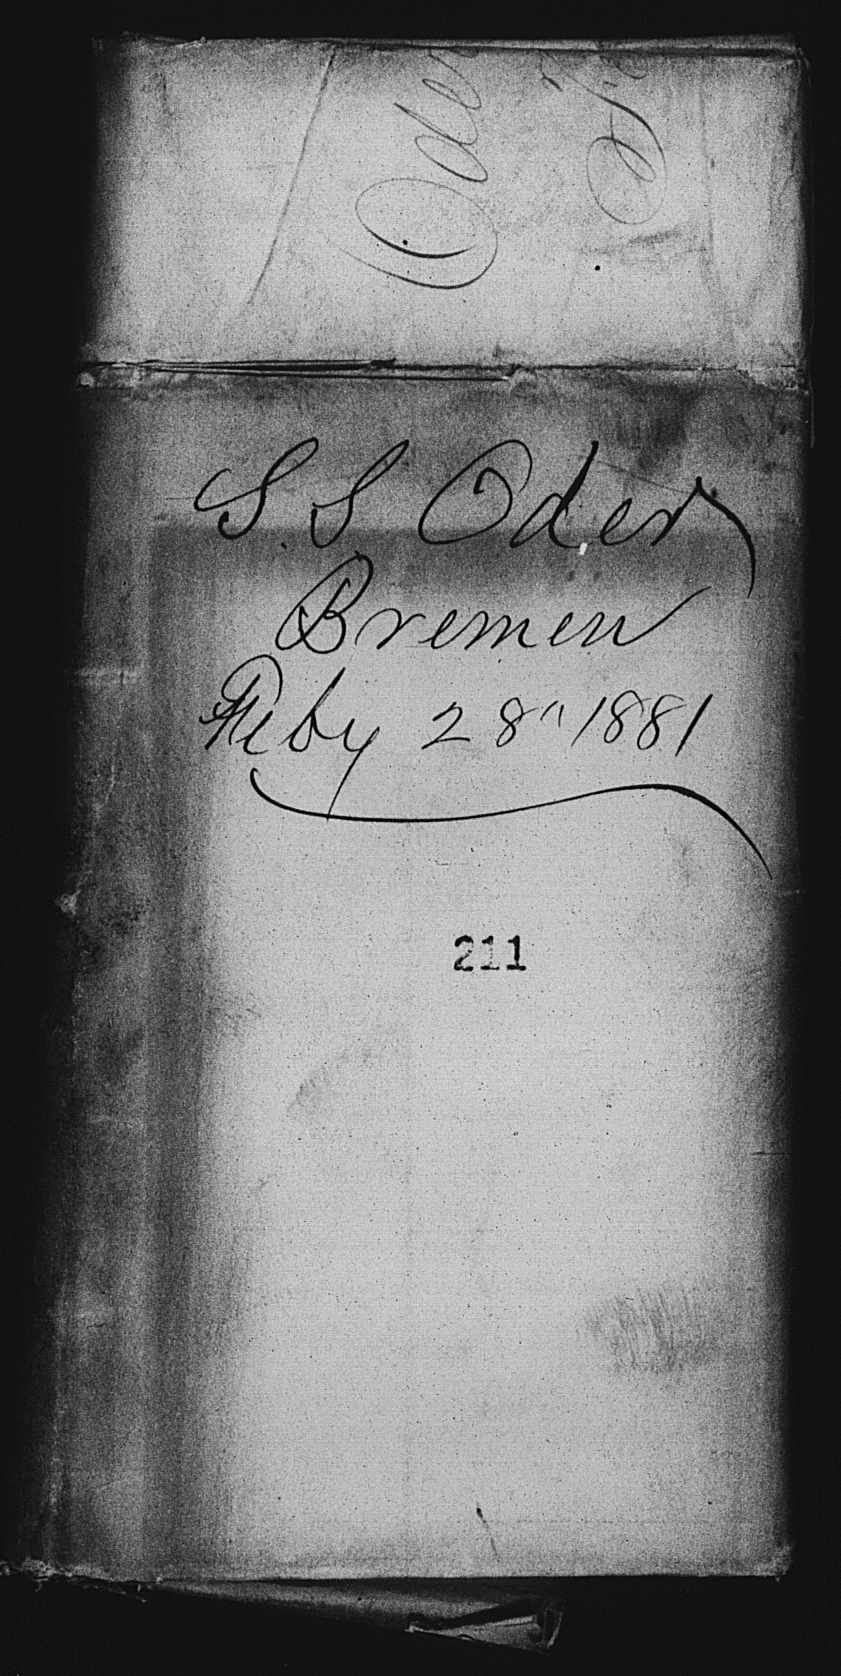 Oder
S.S. Oder
Bremen
Feby 28" 1881
211